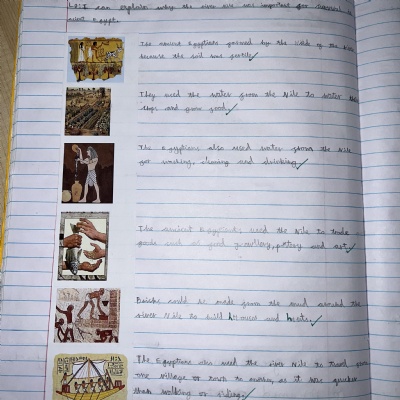 L.O: I can explain why the river nile was important for survival in
ancient Egypt.
The ancient Egyptians farmed by the side of the river
because the soil was fertile.
They used the water from the Nile to water their
and grow food.
The Egyptians also used water from the Nile
for washing, cleaning and drinking.
The ancient Egyptians used the Nile to trade
goods such as food, and art.
Bricks could be made from the mud around the
river Nile to build houses and
The Egyptians also used the river Nile to travel from
one village or town to another, as it was quicker
than walking or riding.